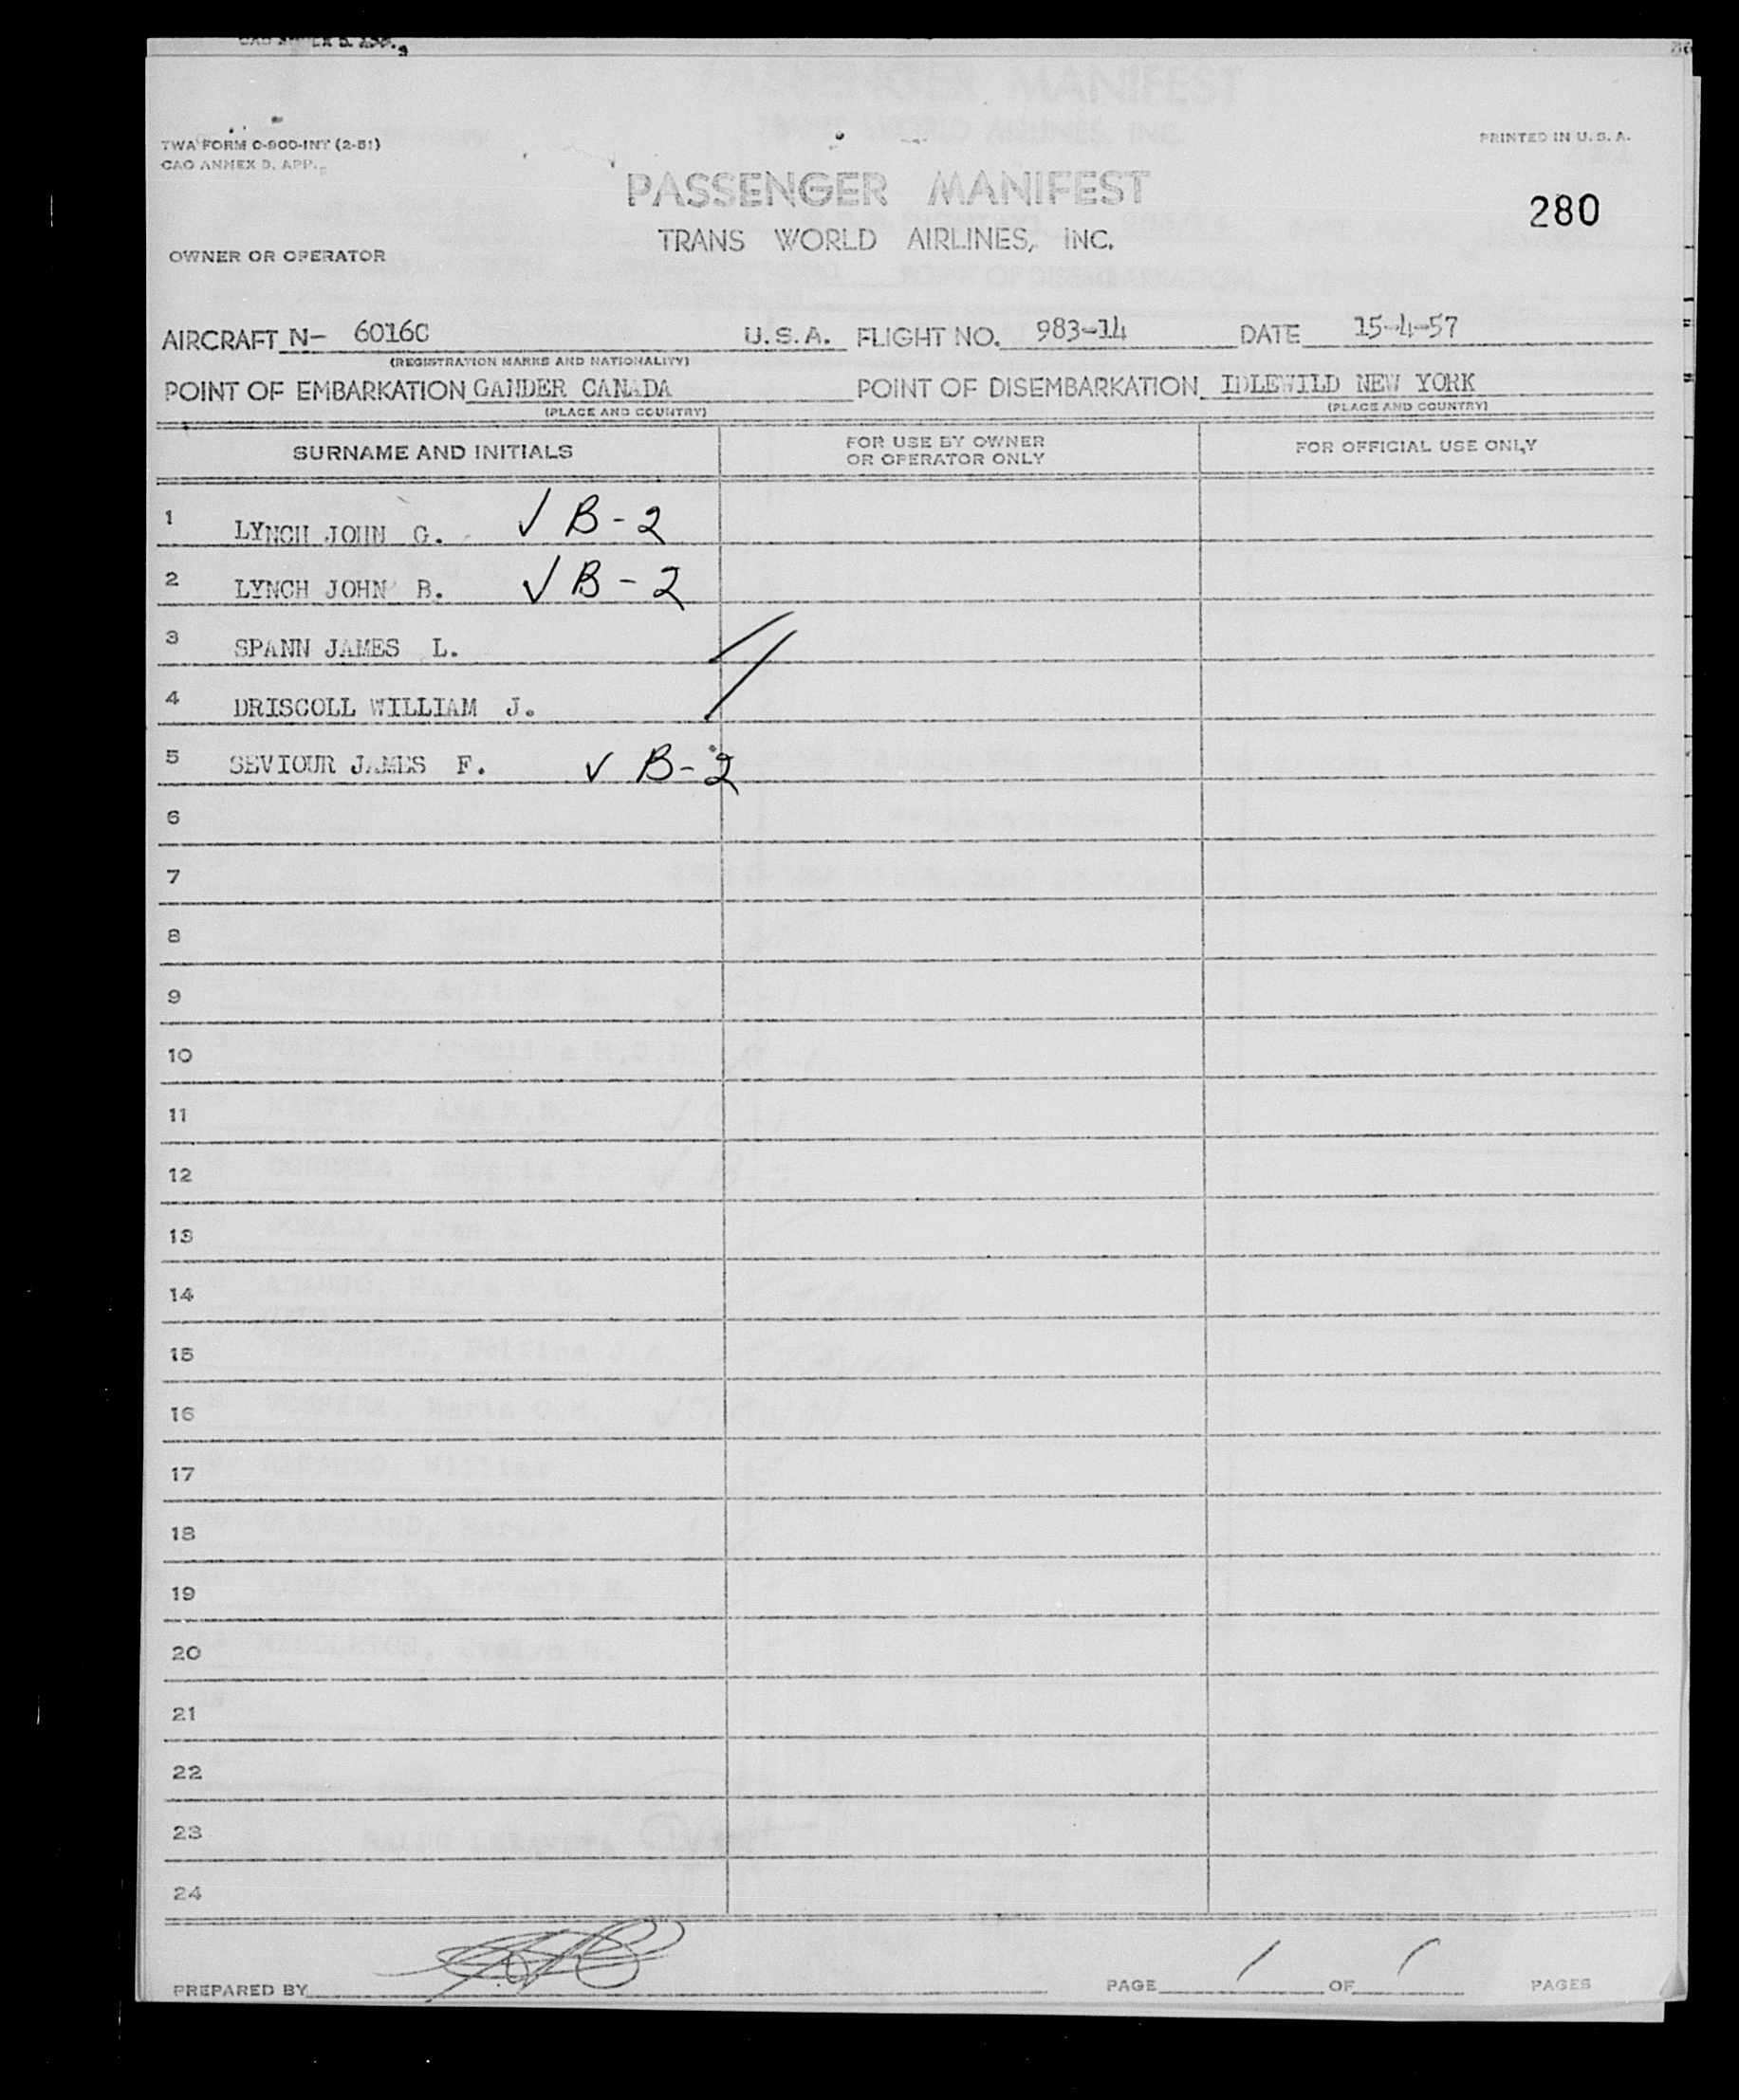 TWA FORM O-900-INT (2-51)
PRINTED IN U. S. A.
CAO ANNEX D. APP.
PASSENGER MANIFEST
280
TRANS WORLD AIRLINES, INC.
OWNER OR OPERATOR
AIRCRAFT N- 6016C U.S.A. FLIGHT NO. 983-14 DATE 15-4-57
(REGISTRATION MARKS AND NATIONALITY)
POINT OF EMBARKATION GANDER CANADA POINT OF DISEMBARKATION IDLEWILD NEW YORK
(PLACE AND COUNTRY) (PLACE AND COUNTRY)
SURNAME AND INITIALS FOR USE BY OWNER OR OPERATOR ONLY FOR OFFICIAL USE ONLY
1 LYNCH JOHN G. ✓ B-2
2 LYNCH JOHN B. ✓ B-2
3 SPANN JAMES L.
4 DRISCOLL WILLIAM J.
5 SEVIOUR JAMES F. ✓ B-2
6
7
8
9
10
11
12
13
14
15
16
17
18
19
20
21
22
23
24
PREPARED BY PAGE 1 OF 1 PAGES